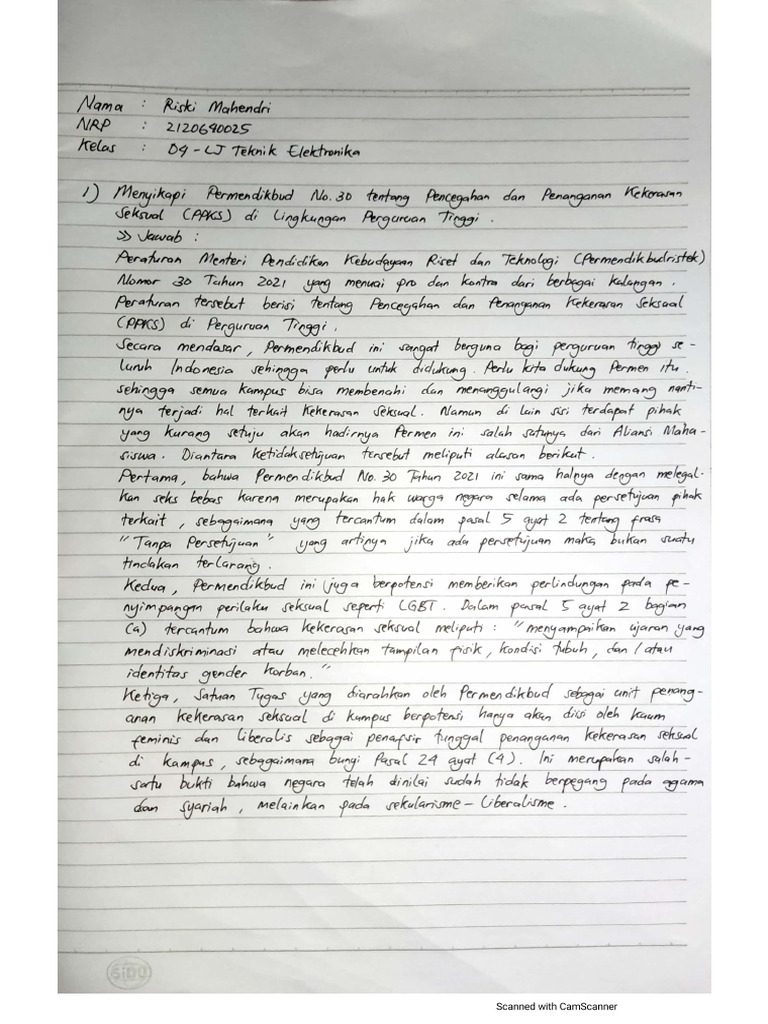 Nama : Riski Mahendri
NRP : 2120640025
Kelas : D4 - LJ Teknik Elektronika
1) Menyikapi Permendikbud No. 30 tentang Pencegahan dan Penanganan Kekerasan
Seksual (PPKS) di Lingkungan Perguruan Tinggi.
>> Jawab :
Peraturan Menteri Pendidikan Kebudayaan Riset dan Teknologi (Permendikbudristek)
Nomor 30 Tahun 2021 yang menuai pro dan kontra dari berbagai kalangan.
Peraturan tersebut berisi tentang Pencegahan dan Penanganan Kekerasan Seksual
(PPKS) di Perguruan Tinggi.
Secara mendasar, Permendikbud ini sangat berguna bagi perguruan tinggi se-
luruh Indonesia sehingga perlu untuk didukung. Perlu kita dukung Permen itu.
sehingga semua kampus bisa membenahi dan menanggulangi jika memang nanti-
nya terjadi hal terkait kekerasan seksual. Namun di lain sisi terdapat pihak
yang kurang setuju akan hadirnya Permen ini salah satunya dari Aliansi Maha-
siswa. Diantara ketidaksetujuan tersebut meliputi alasan berikut.
Pertama, bahwa Permendikbud No. 30 Tahun 2021 ini sama halnya dengan melegal-
kan seks bebas karena merupakan hak warga negara selama ada persetujuan pihak
terkait, sebagaimana yang tercantum dalam pasal 5 ayat 2 tentang frasa
"Tanpa Persetujuan" yang artinya jika ada persetujuan maka bukan suatu
tindakan terlarang.
Kedua, Permendikbud ini juga berpotensi memberikan perlindungan pada pe-
nyimpangan perilaku seksual seperti LGBT. Dalam pasal 5 ayat 2 bagian
(a) tercantum bahwa kekerasan seksual meliputi : "menyampaikan ujaran yang
mendiskriminasi atau melecehkan tampilan fisik, kondisi tubuh, dan/atau
identitas gender korban."
Ketiga, Satuan Tugas yang diarahkan oleh Permendikbud sebagai unit penang-
anan kekerasan seksual di kampus berpotensi hanya akan diisi oleh kaum
feminis dan liberalis sebagai penafsir tunggal penanganan kekerasan seksual
di kampus, sebagaimana bunyi Pasal 24 ayat (4). Ini merupakan salah-
satu bukti bahwa negara telah dinilai sudah tidak berpegang pada agama
dan syariah, melainkan pada sekularisme-liberalisme.
SiDU
Scanned with CamScanner